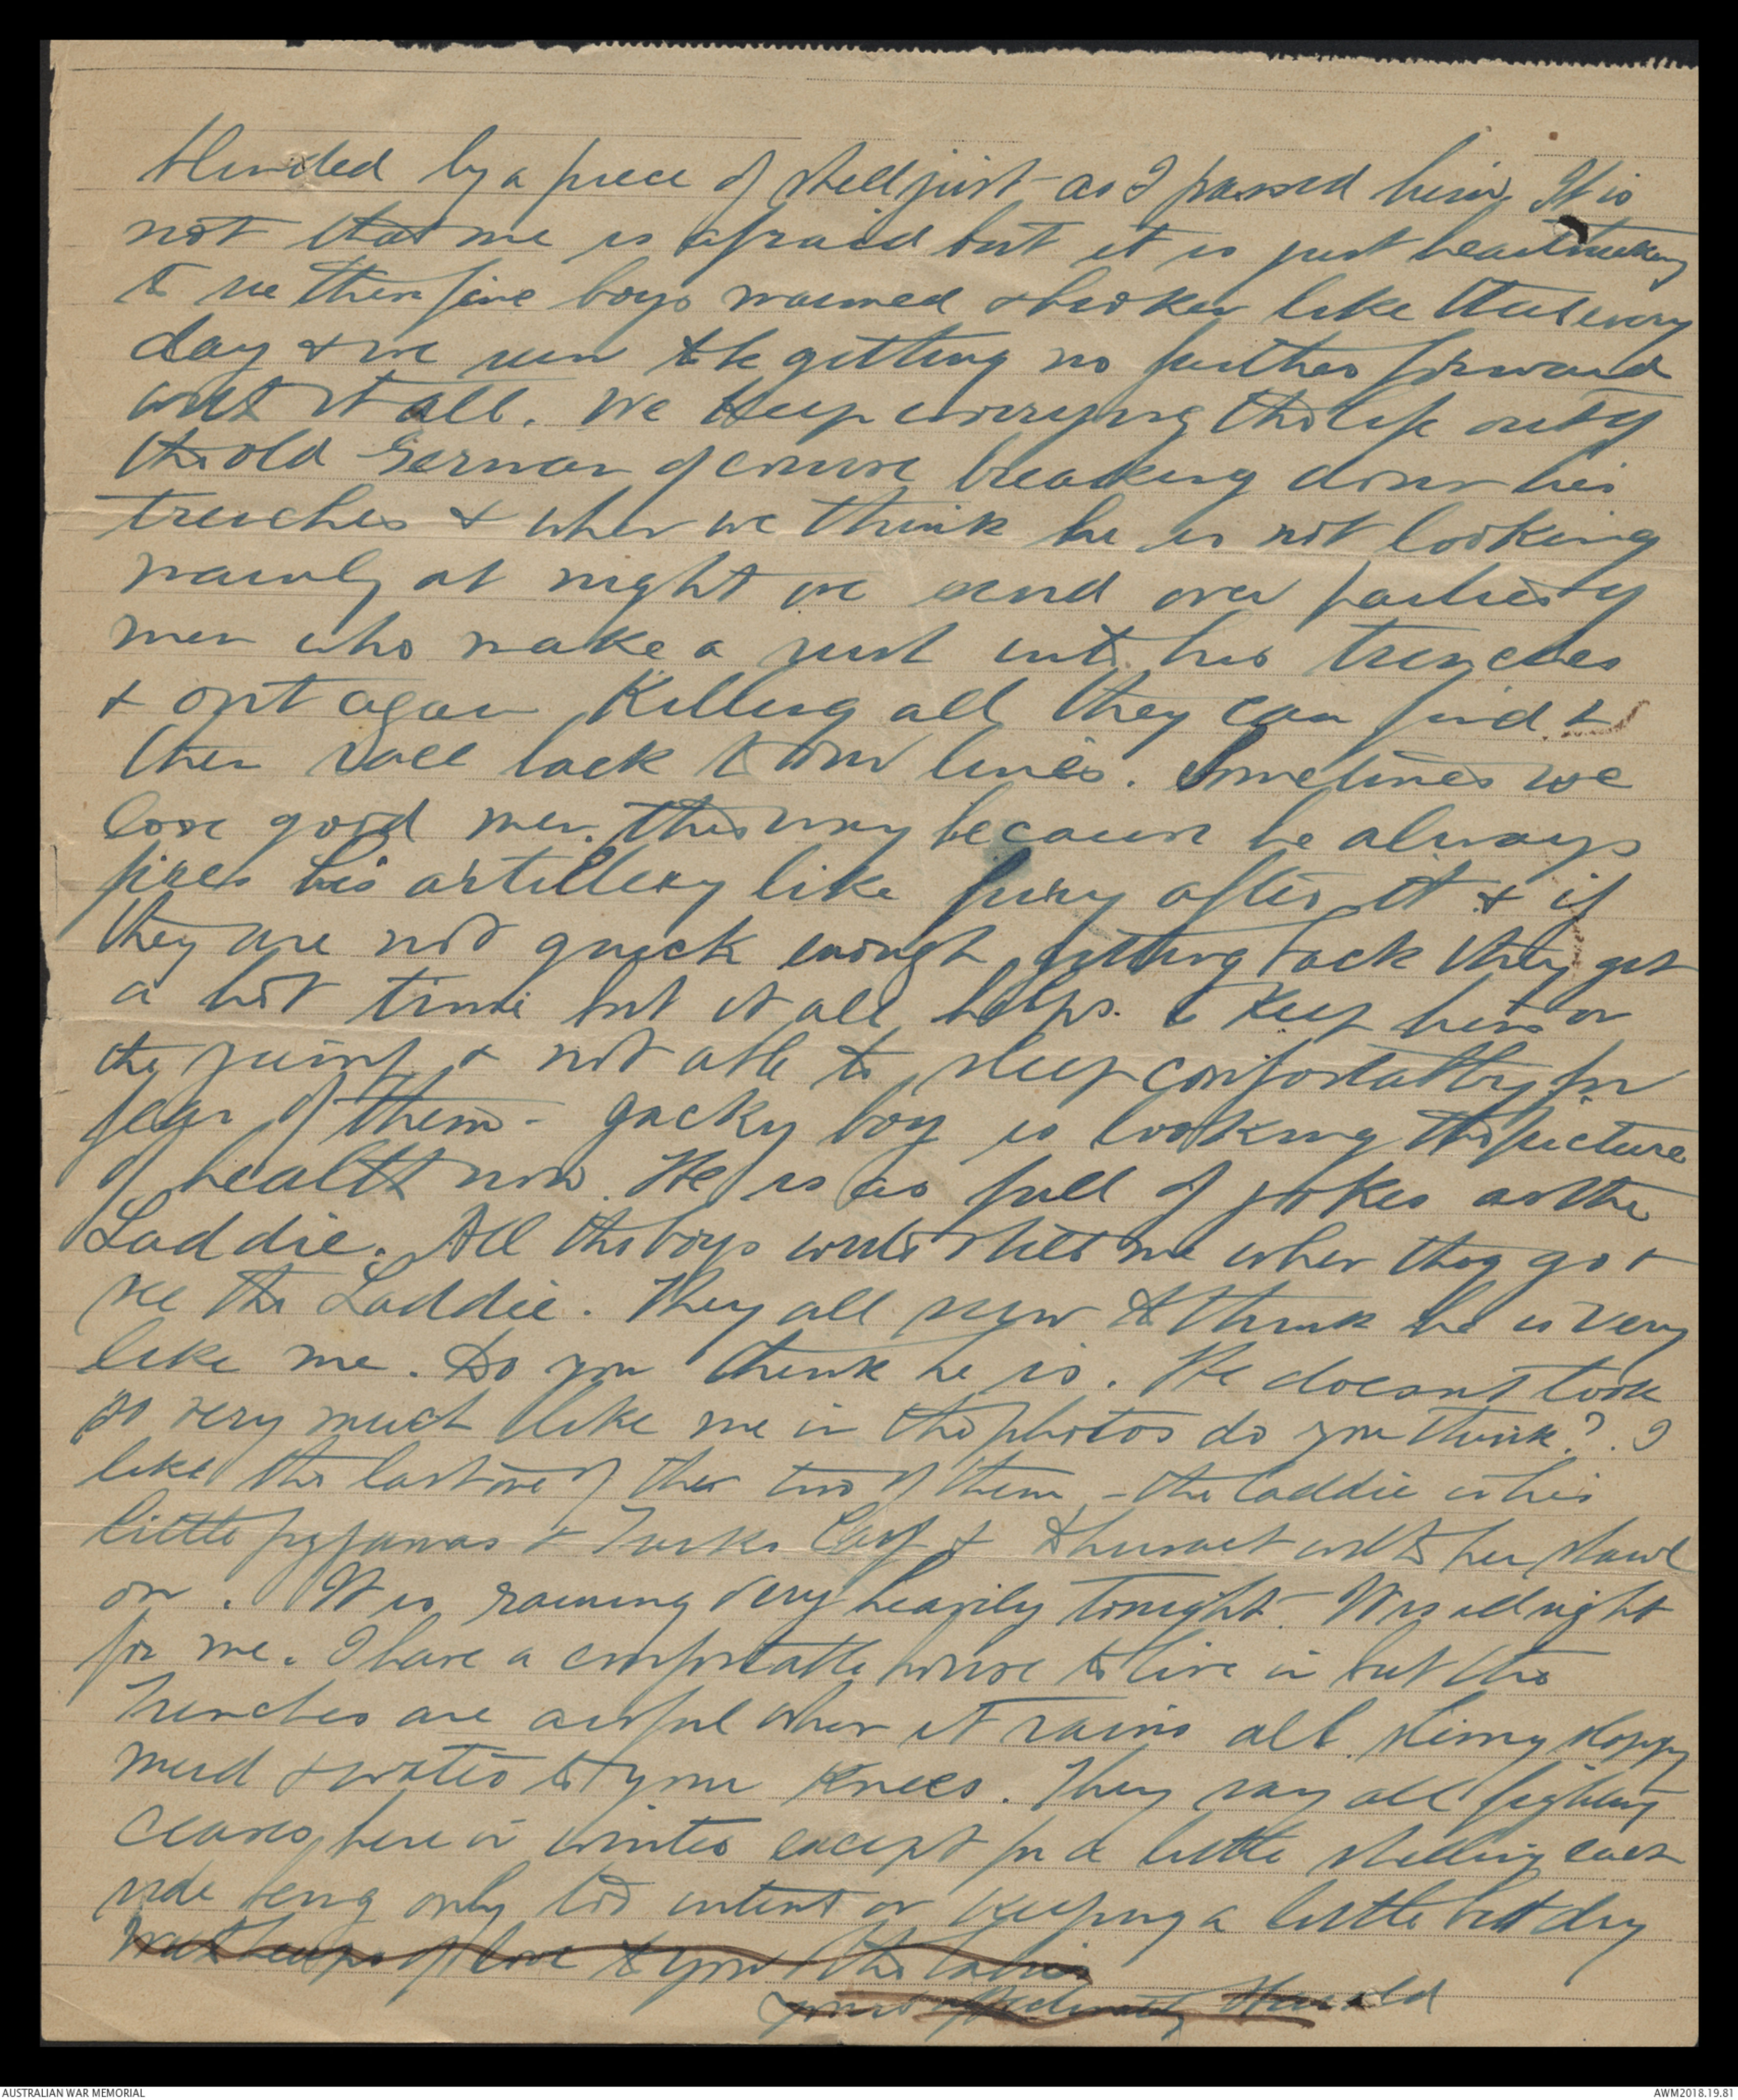 blinded by a piece of shell just as I passed him. It is
not that one is afraid but it is just heartbreaking
to see them fine boys maimed & broken like that every
day & we seem to be getting no further forward
with it all. We keep worrying the life out of
the old German of course breaking down his
trenches & when we think he is not looking
mainly at night we send over parties of
men who make a rush into his trenches
& out again killing all they can find &
then race back to our lines. Sometimes we
lose good men this way because he always
fires his artillery like fury after it & if
they are not quick enough getting back they get
a hot time but it all helps to keep him on
the jump & not able to sleep comfortably for
fear of them - Jacky boy is looking the picture
of health now. He is as full of jokes as the
Laddie. All the boys write & tell me when they go &
see the Laddie. They all seem to think he is very
like me. Do you think he is. He doesnt look
so very much like me in the photos do you think? . I
like the last one of the two of them - the laddie in his
little pyjamas & Turks Cap & with her shawl
on . It is raining very heavily tonight. It is all right
for me. I have a comfortable house to live in but the
trenches are awful when it rains all slimy sloppy
mud & water to your knees. They say all fighting
ceases here in winter except for a little shelling each
side being only too intent on keeping a little bit dry
With heaps of love to you & the babies
Yours affectionately Harold
AUSTRALIAN WAR MEMORIAL
AWM2018.19.81